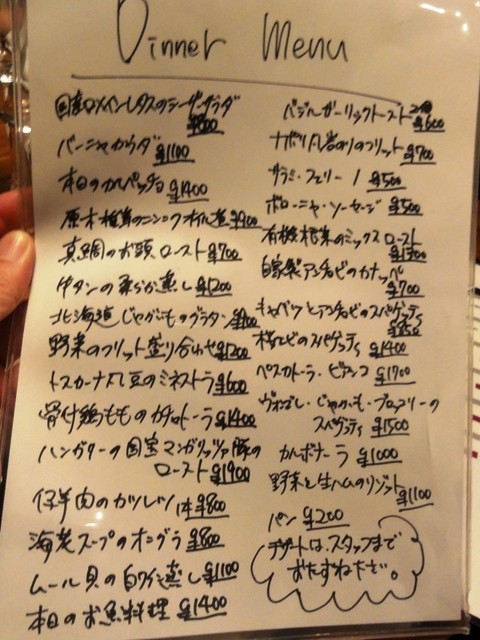 Dinner Menu
国産ロメインレタスのシーザーサラダ
バーニャカウダ ¥1100
本日のカルパッチョ ¥1400
原木椎茸のニンニクオイル煮 ¥900
真鯛のお頭ロースト ¥700
牛タンの柔らか蒸し ¥1200
北海道じゃがいものグラタン
野菜のフリット盛り合わせ ¥1200
トスカーナ風豆のミネストラ ¥600
骨付鶏もものカチャトーラ ¥1400
ハンガリーの国宝マンガリッツァ豚の
ロースト ¥1900
仔羊肉のカツレツ 1本 ¥800
海老スープのオニグラ ¥800
ムール貝の白ワイン蒸し ¥1100
本日のお魚料理 ¥1400
バジルガーリックトースト 2個 ¥600
ナポリ風岩のりのフリット ¥700
サラミ・フェリーノ ¥500
ボローニャソーセージ ¥500
有機根菜のミックスロースト
¥1300
自家製アンチョビのカナッペ
¥700
キャベツとアンチョビのスパゲッティ
桜エビのスパゲッティ ¥1400
ペスカトーラ・ビアンコ ¥1700
ヴォンゴレ・じゃがいも・ブロッコリーの
スパゲッティ ¥1500
カルボナーラ ¥1000
野菜と生ハムのリゾット
¥1100
パン ¥200
デザートは、スタッフまで
おたずね下さい。